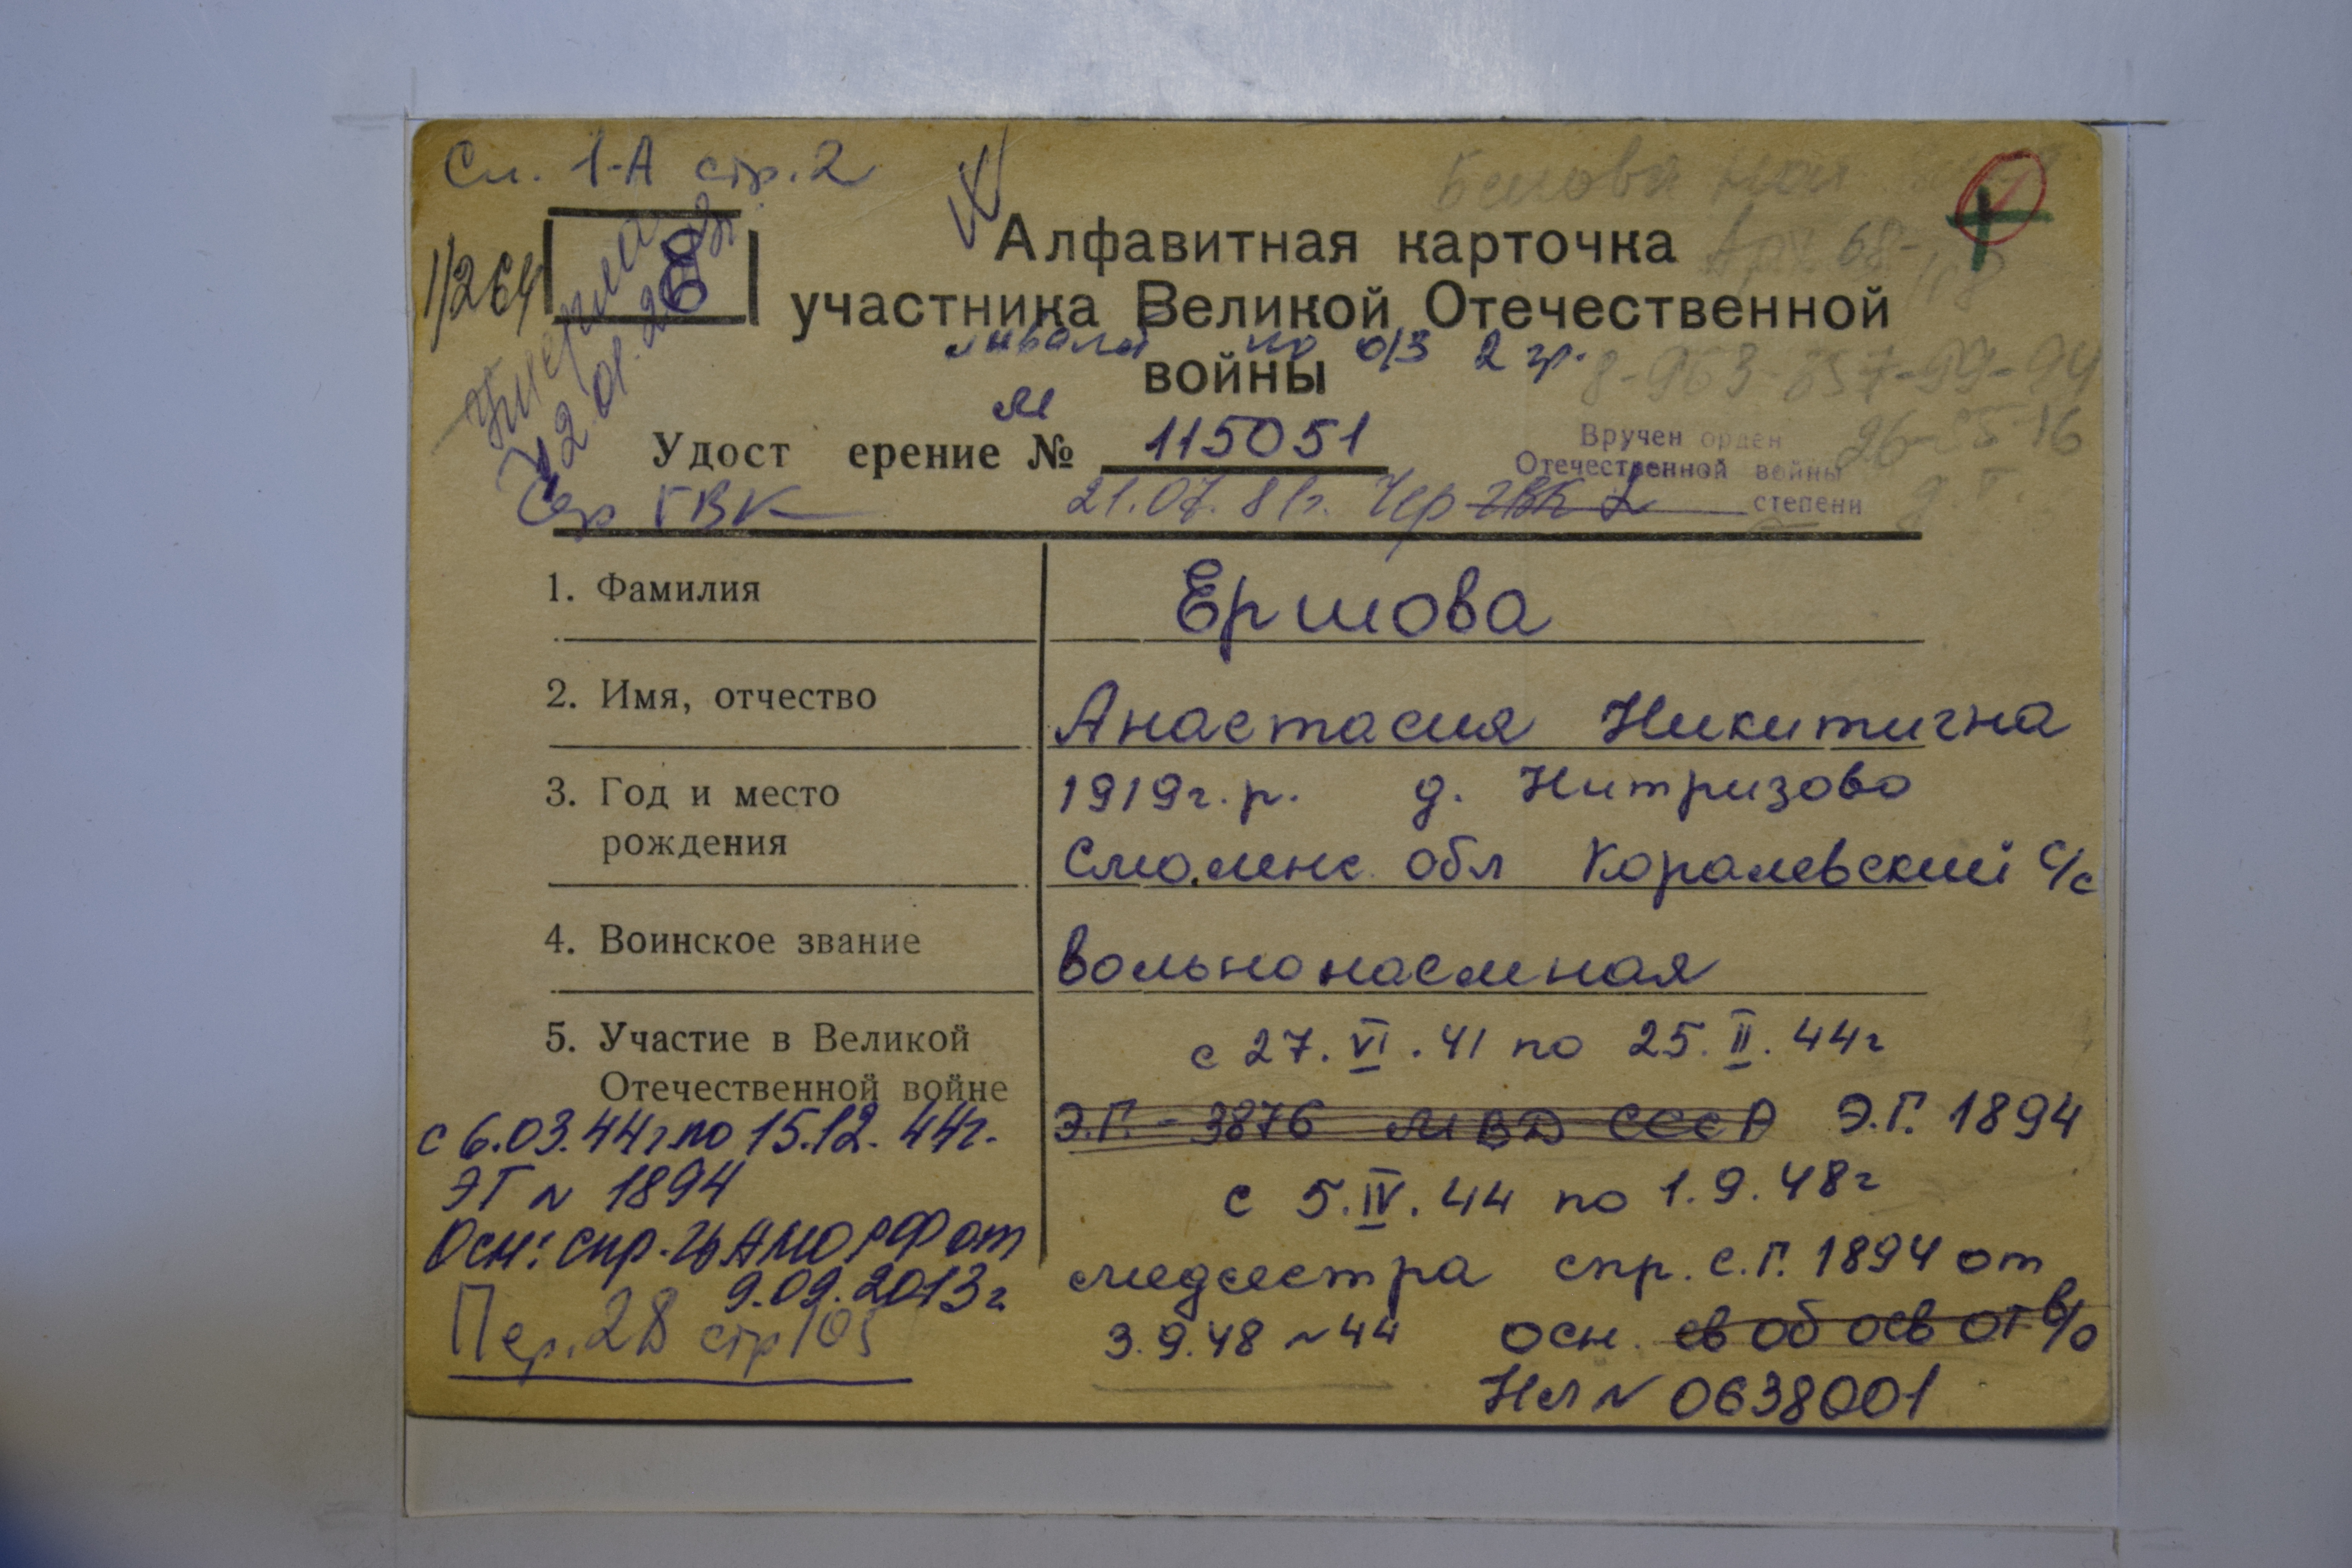 См. 1-А стр. 2
1/264
Е
Умерла
12.01.
Алфавитная карточка
участника Великой Отечественной
инвалид по о/з 2 гр.
войны
8-953-
М
Удост ерение № 115051
Вручен орден
Отечественной войны
степени
26-
ГВК
21.07.81г. Чер ГВК
1. Фамилия
Ершова
2. Имя, отчество
Анастасия Никитична
3. Год и место
рождения
1919г.р. д. Нитризово
Смоленс. обл Коралевский с/с
4. Воинское звание
вольнонаемная
5. Участие в Великой
Отечественной войне
с 27.VI.41 по 25.II.44г
Э.Г. - 3876 МВД СССР Э.Г. 1894
с 5.IV.44 по 1.9.48г
медсестра спр. с.Г. 1894 от
3.9.48 N44 осн. св об осв от в/о
НЛ N 0638001
с 6.03.44г по 15.12.44г.
ЭГ N 1894
Осн: спр. ЦАМО РФ от
9.09.2013г
Пер. 28 стр 105